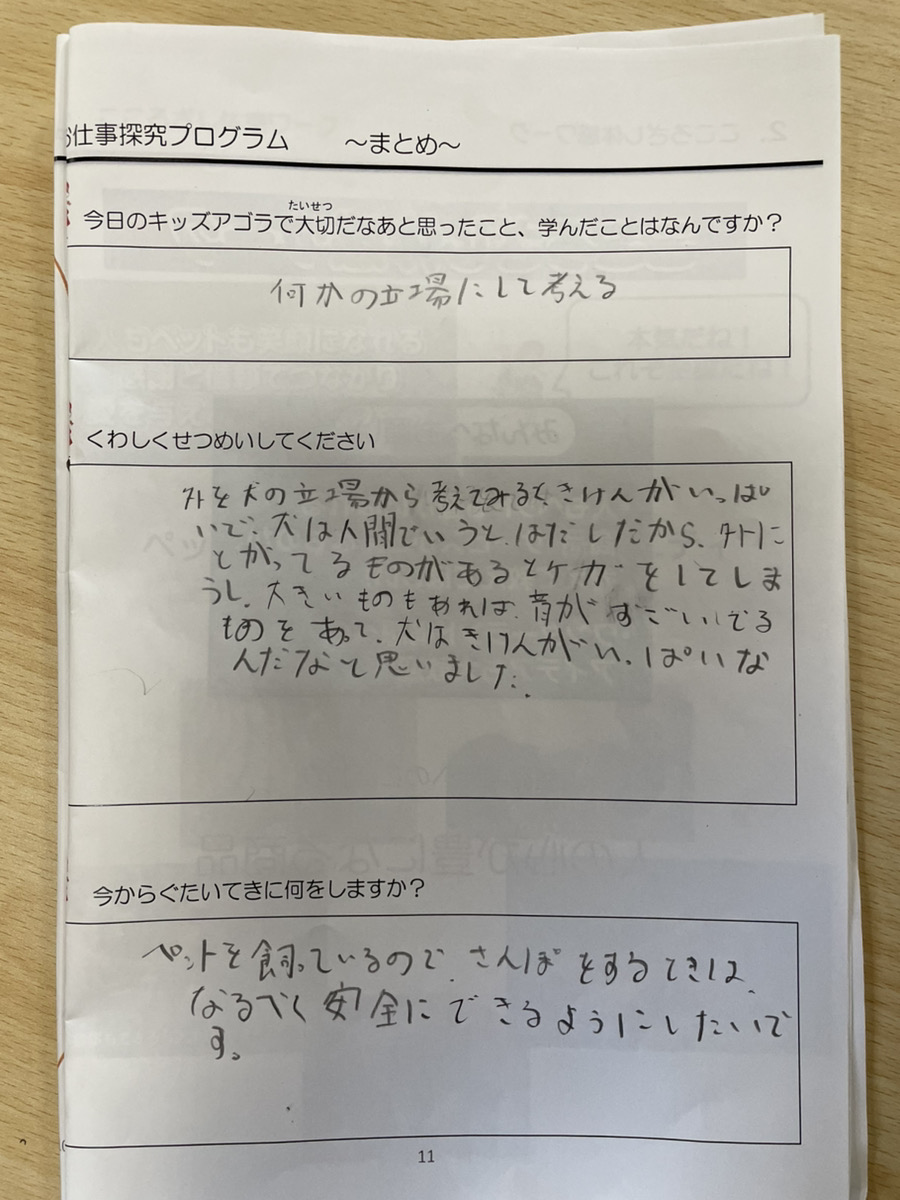 お仕事探究プログラム　～まとめ～
たいせつ
今日のキッズアゴラで大切だなあと思ったこと、学んだことはなんですか？
何かの立場にして考える
くわしくせつめいしてください
外を犬の立場から考えてみると、きけんがいっぱ
いで、犬は人間でいうと、はだしだから、外に
とがってるものがあるとケガをしてしま
うし、大きいものもあれば、音がすごいでる
ものをあって、犬はきけんがいっぱいな
んだなと思いました。
今からぐたいてきに何をしますか？
ペットを飼っているので、さんぽをするときは、
なるべく安全にできるようにしたいで
す。
11